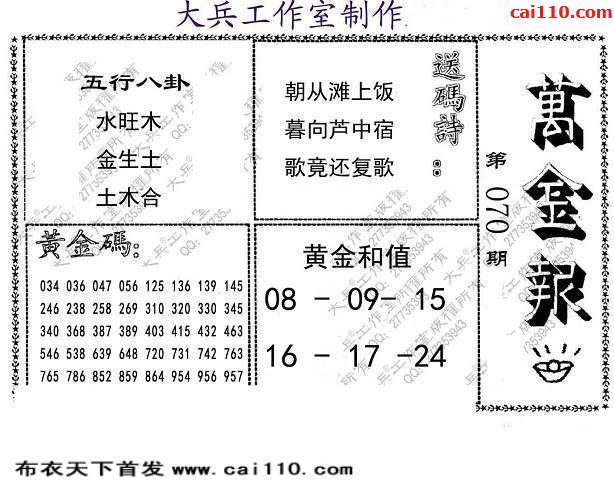 大兵工作室制作
cai110.com
五行八卦
水旺木
金生土
土木合
送碼詩：
朝从滩上饭
暮向芦中宿
歌竟还复歌
萬金報
第070期
黃金碼:
034 036 047 056 125 136 139 145
246 238 258 269 310 320 330 345
340 368 387 389 403 415 432 463
546 538 639 648 720 731 742 763
765 786 852 859 864 954 956 957
黄金和值
08 - 09- 15
16 - 17 -24
布衣天下首发 www.cai110.com